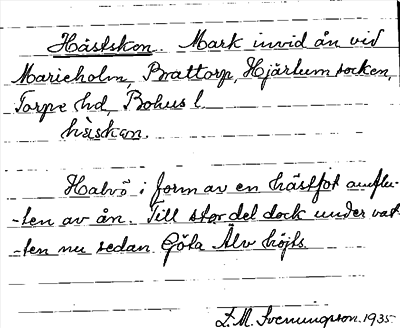 Hästskon. Mark invid ån vid
Marieholm, Brattorp, Hjärtum socken,
Torpe hd, Bohus l.
hàskan.
Halvö i form av en hästfot anflu-
-ten av ån. Till stor del dock under vat-
-ten nu sedan Göta Älv höjts.
L. M. Svenungsson. 1935.